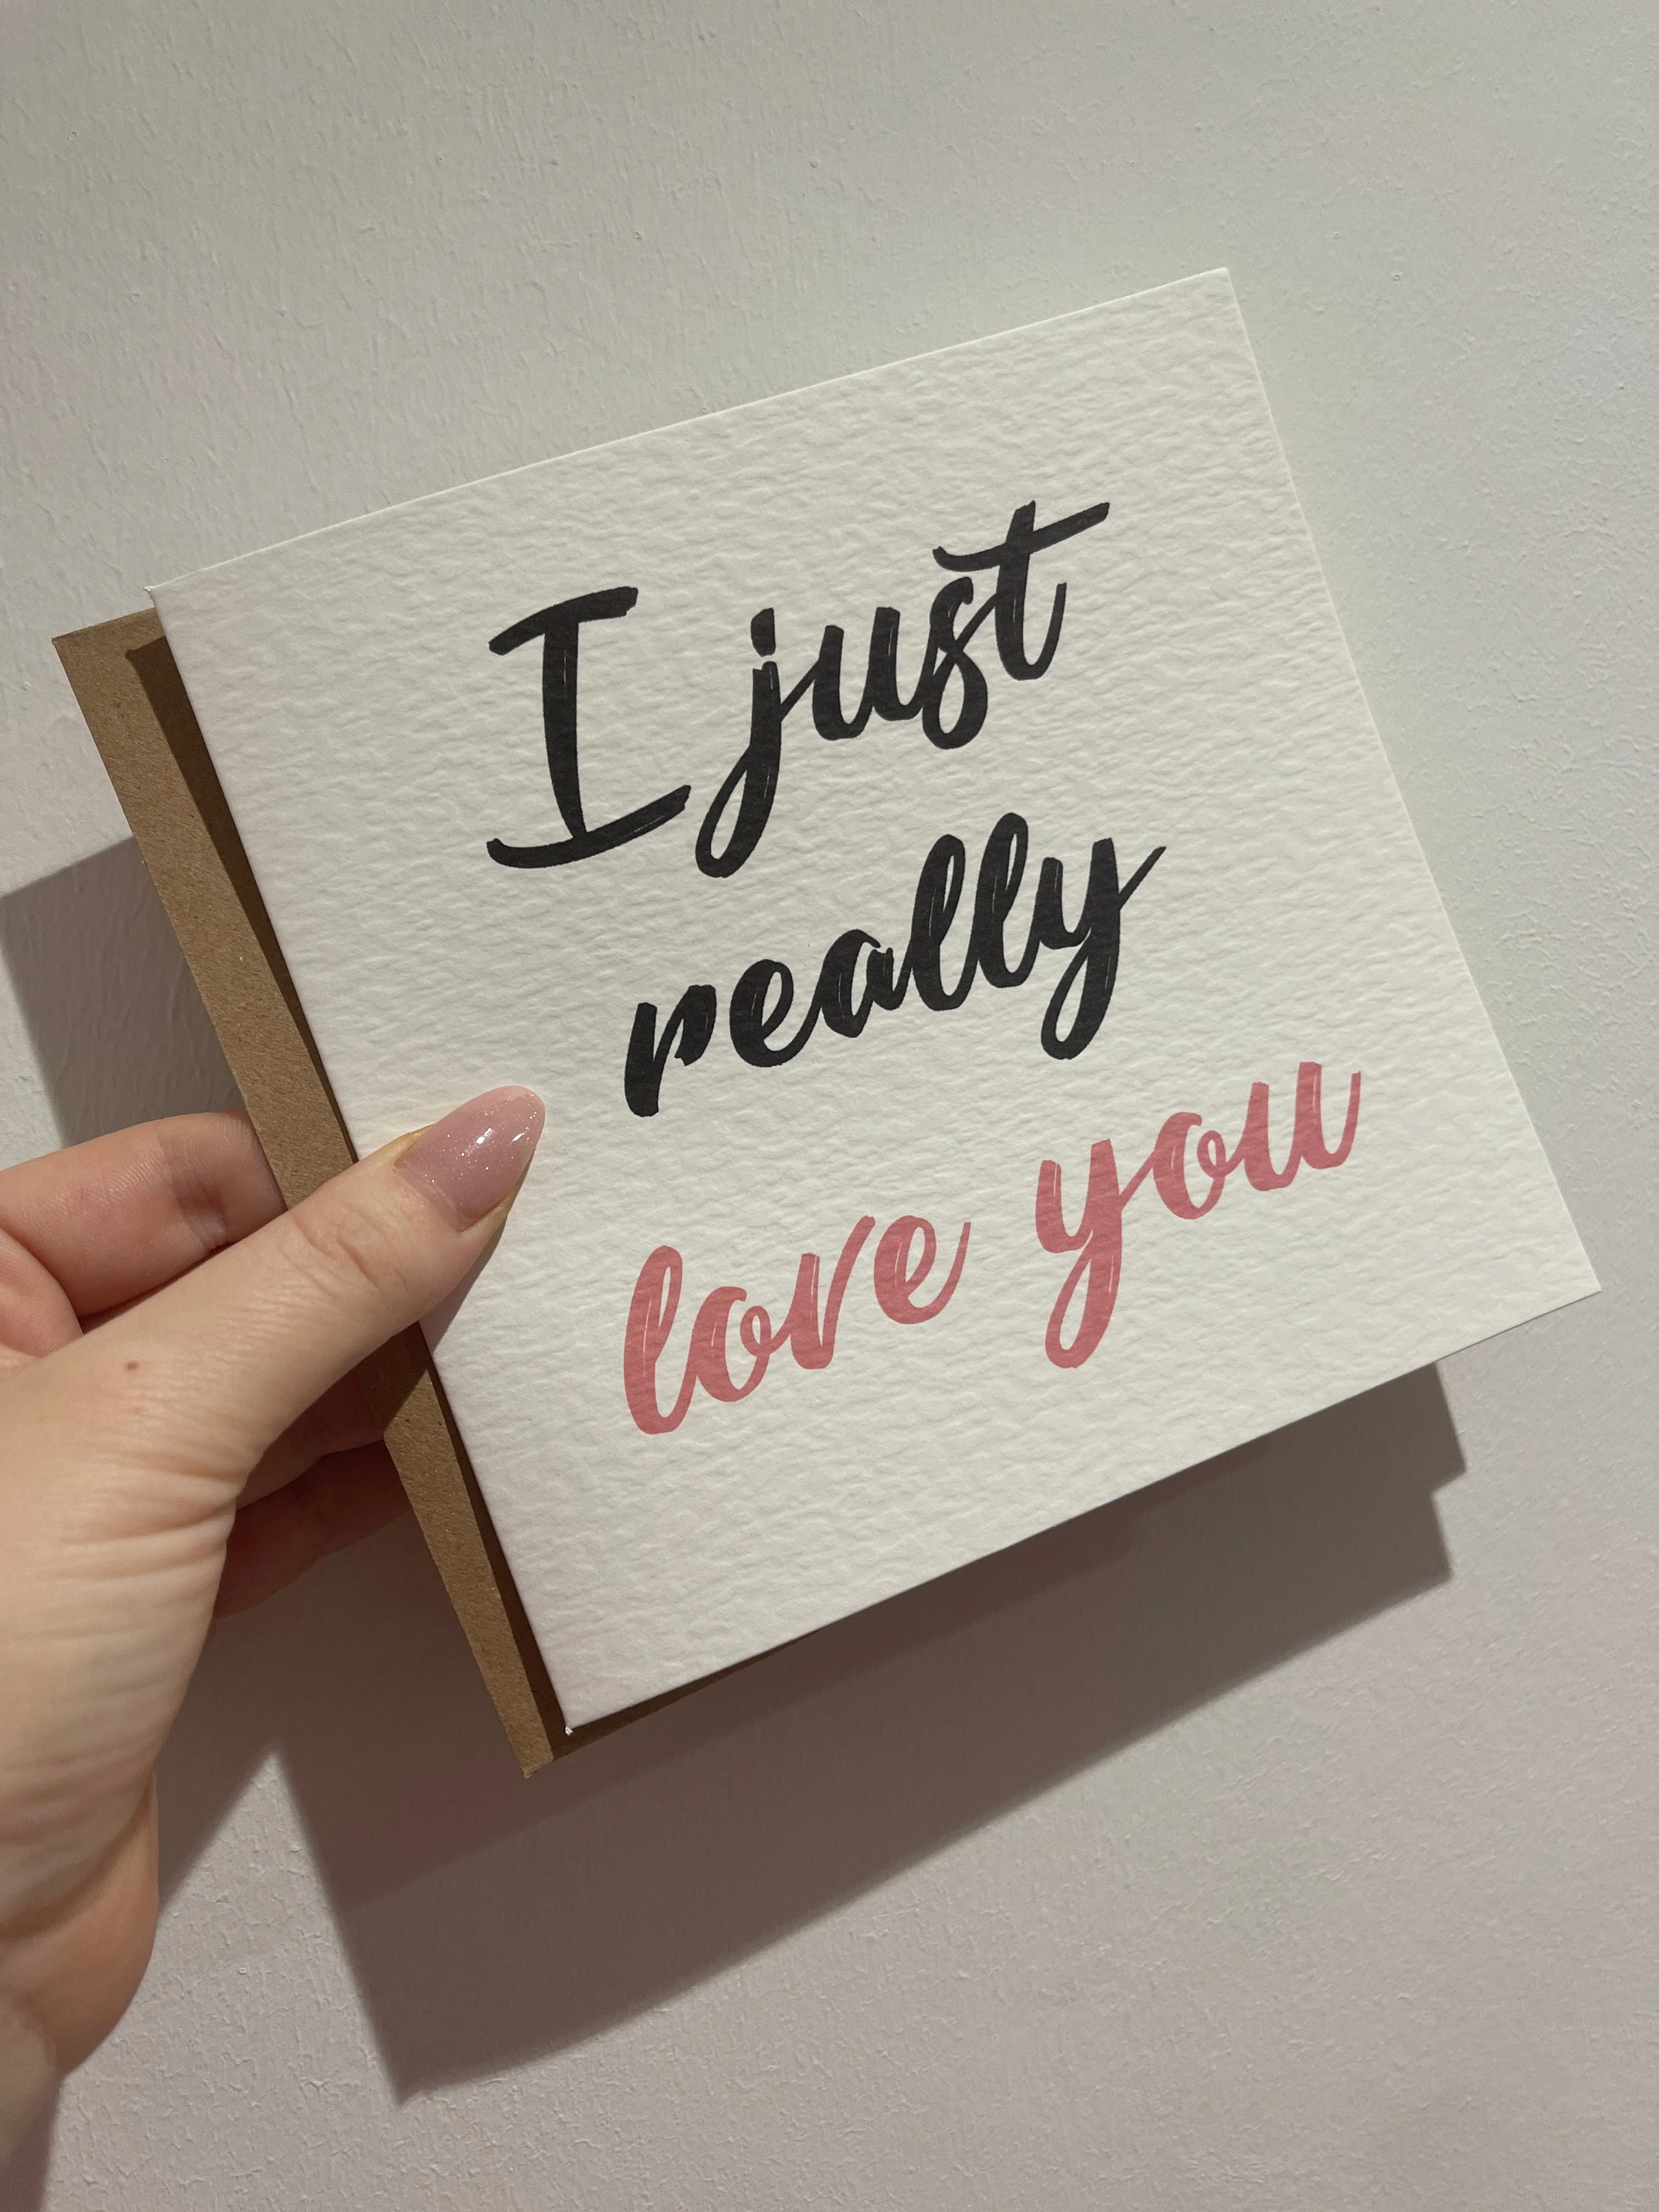 I just
really
love you